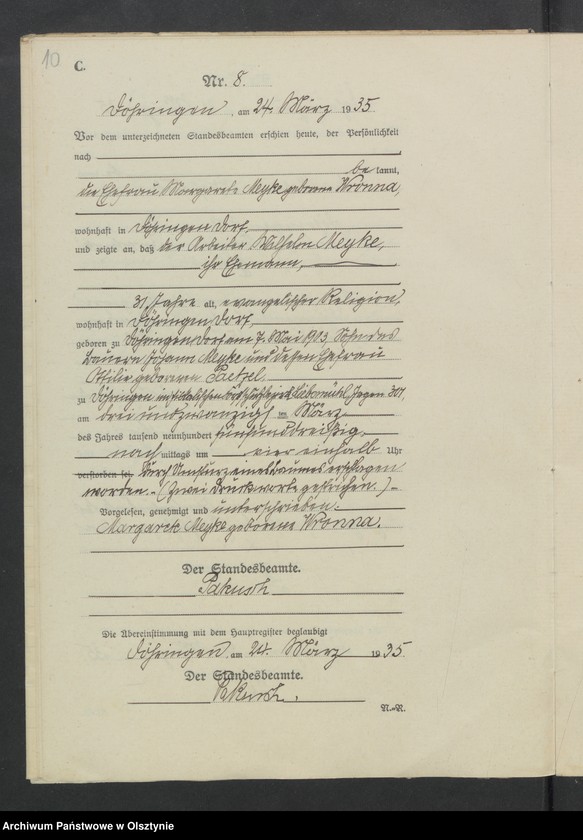 10
C.
Nr. 8.
Döhringen, am 24. März 1935
Vor dem unterzeichneten Standesbeamten erschien heute, der Persönlichkeit
nach
be kannt,
die Ehefrau Margarete Meyke geborene Wronna,
wohnhaft in Döhringen Dorf,
und zeigte an, daß der Arbeiter Wilhelm Meyke,
ihr Ehemann,
31 Jahre alt, evangelischer Religion,
wohnhaft in Döhringen Dorf,
geboren zu Döhringen Dorf am 7. Mai 1903, Sohn des
Bauern Johann Meyke und dessen Ehefrau
Ottilie geborenen Paetzel,
zu Döhringen Jagen
am drei und zwanzigsten März
des Jahres tausend neunhundert fünfunddreißig
nach mittags um vier einhalb Uhr
verstorben sei, durch Umsturz eines Baumes erschlagen
worden. - (Zwei Druckworte gestrichen.) -
Vorgelesen, genehmigt und unterschrieben.
Margarete Meyke geborene Wronna.
Der Standesbeamte.
Pakusch
Die Übereinstimmung mit dem Hauptregister beglaubigt
Döhringen, am 24. März 1935
Der Standesbeamte.
Pakusch.
N.-R.
Archiwum Państwowe w Olsztynie